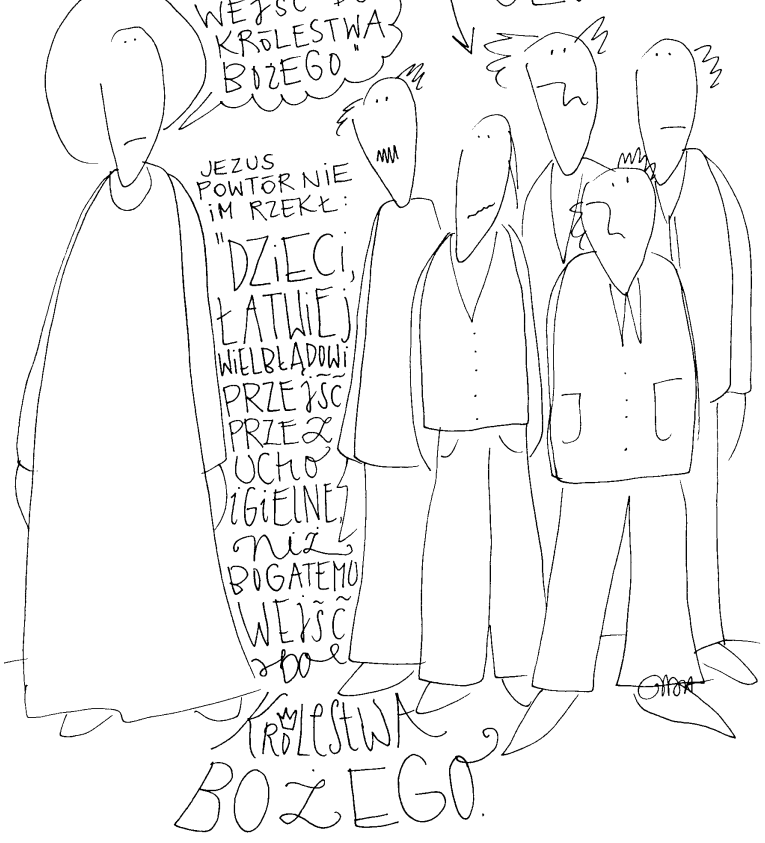 WEJŚĆ DO
KRÓLESTWA
BOŻEGO"
JEZUS
POWTÓRNIE
IM RZEKŁ:
"DZIECI,
ŁATWIEJ
WIELBŁĄDOWI
PRZEJŚĆ
PRZEZ
UCHO
IGIELNE,
NIŻ
BOGATEMU
WEJŚĆ
DO
KRÓLESTWA
BOŻEGO.